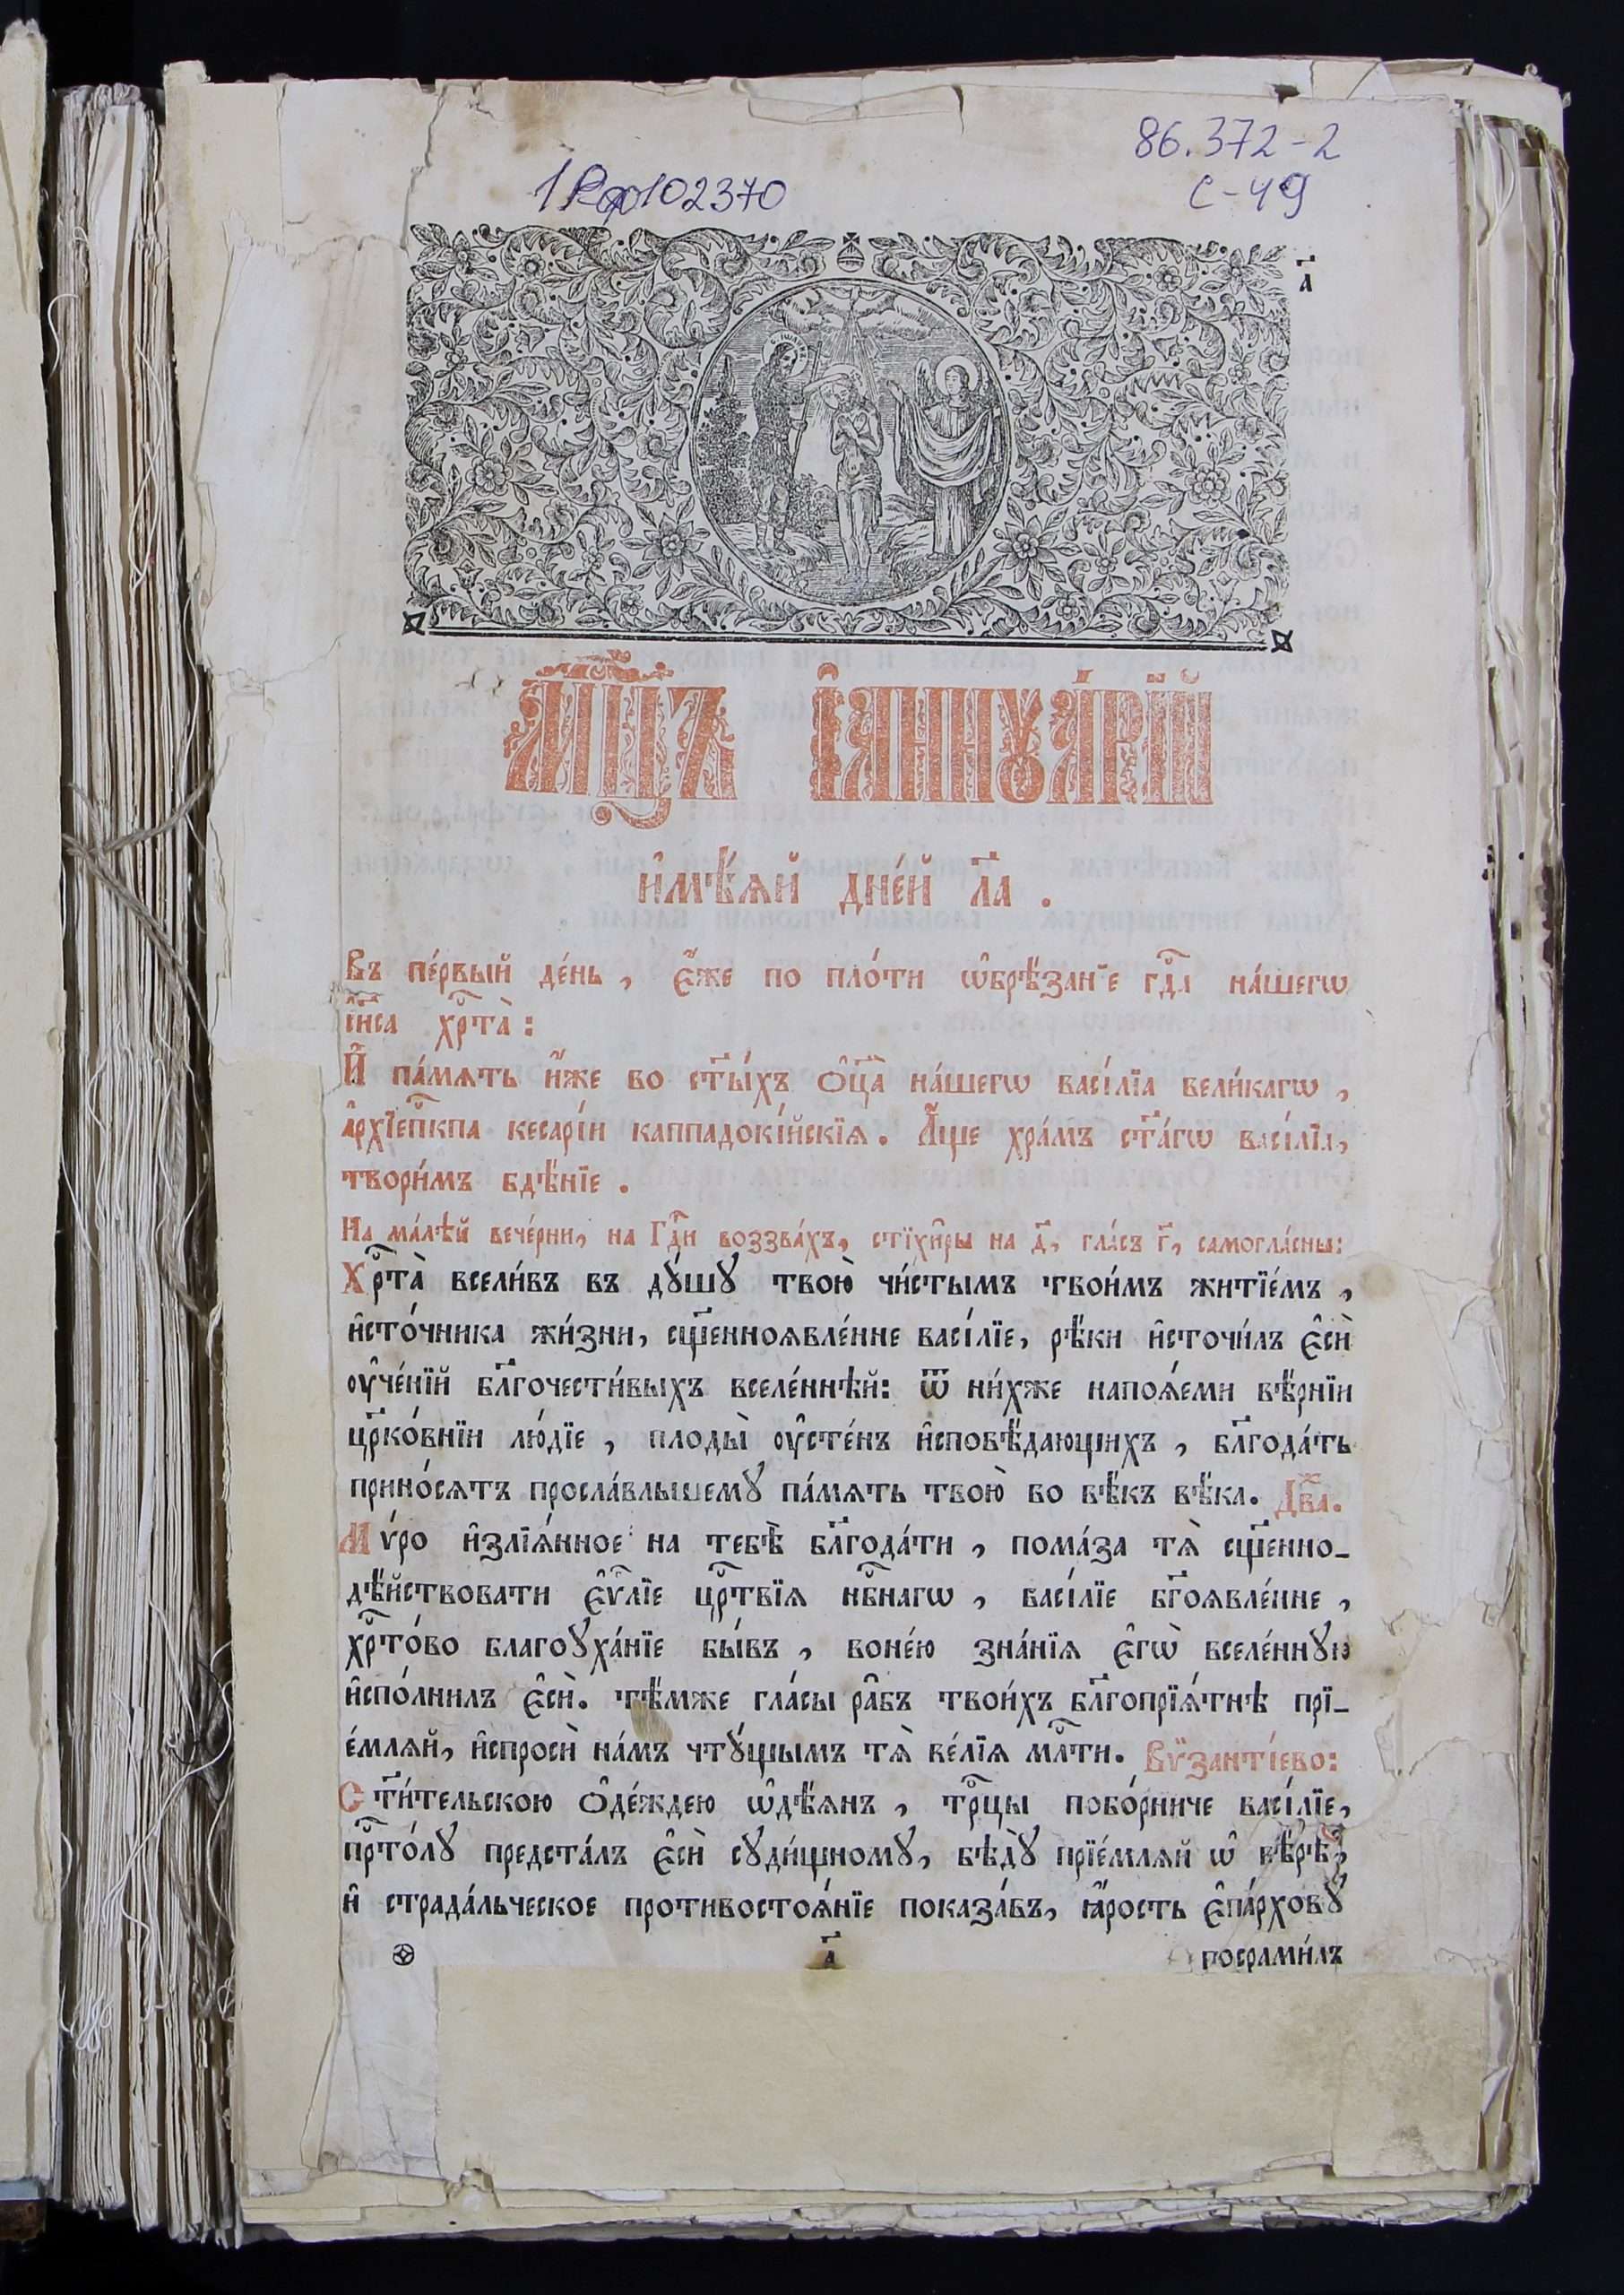 86.372-2
С-49
а҃
Мц҇ъ і҆аннꙋа́рїй
и҆мѣ́ѧй дне́й л҃а .
Въ пе́рвый де́нь , є҆́же по пло́ти ѡ҆брѣ́занїе гдⷭ҇а на́шегѡ
і҆и҃са хрⷭ҇та̀ :
И҆ па́мѧть и҆́же во ст҃ы́хъ ѻ҆ц҃а̀ на́шегѡ васі́лїа вели́кагѡ ,
а҆рхїепⷭ҇кпа кесарі́и каппадокі́йскїѧ . А҆́ще хра́мъ ст҃а́гѡ васі́лїа ,
твори́мъ бдѣ́нїе .
На ма́лѣй вече́рни , на Гдⷭ҇и воззва́хъ , стїхи̑ры на д҃ , гла́съ г҃ , самогла́сны :
Хрⷭ҇та̀ всели́въ въ дꙋ́шꙋ твою̀ чи́стымъ твои́мъ житїе́мъ ,
и҆сто́чника жи́зни , сщ҃енноѧвле́нне васі́лїе , рѣ́ки и҆сточи́лъ є҆сѝ
ᲂу҆че́нїй бл҃гочести́выхъ вселе́ннѣй : ѿ ни́хже напоѧ́еми вѣ́рнїи
цр҃ко́внїи лю́дїе , плоды̀ ᲂу҆сте́нъ и҆сповѣ́дающихъ , бл҃года́ть
прино́сѧтъ просла́вльшемꙋ па́мѧть твою̀ во вѣ́къ вѣ́ка . Двⷭ҇а .
Мѵ́ро и҆злїѧ́нное на тебѣ̀ бл҃года́ти , пома́за тѧ̀ сщ҃енно-
дѣ́йствовати є҆ѵⷢ҇лїе црⷭ҇твїѧ нбⷭ҇нагѡ , васі́лїе бг҃оѧвле́нне ,
хрⷭ҇то́во благоꙋха́нїе бы́въ , воне́ю зна́нїѧ є҆гѡ̀ вселе́ннꙋю
и҆спо́лнилъ є҆сѝ . тѣ́мже гла́сы ра̑бъ твои́хъ бл҃гопрїѧ́тнѣ прї-
е́млѧй , и҆спросѝ на́мъ чтꙋ́щымъ тѧ̀ ве́лїѧ млⷭ҇ти . Вѷзанті́ево :
Ст҃и́тельскою ѻ҆де́ждею ѡ҆дѣ́ѧнъ , трⷪ҇цы побо́рниче васі́лїе ,
прⷭ҇то́лꙋ предста́лъ є҆сѝ сꙋди́щномꙋ , бѣдꙋ̀ прїе́млѧй ѡ҆ вѣ́рѣ ,
и҆ страда́льческое противостоѧ́нїе показа́въ , ꙗ҆́рость є҆па́рховꙋ
а҃ посрами́лъ